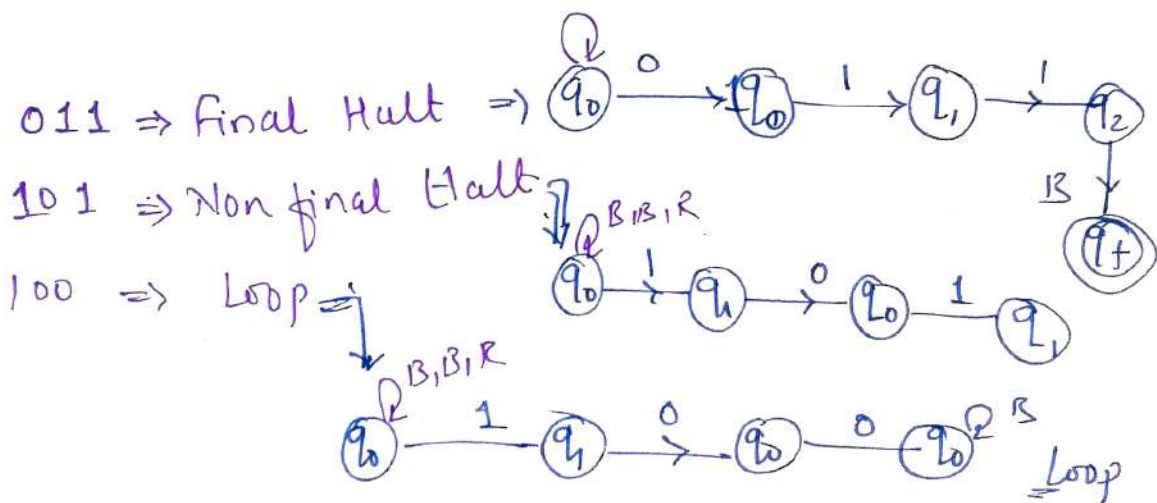 011 ⇒ Final Halt ⇒ q0 0 q0 1 q1 1 q2
B
qf
101 ⇒ Non final Halt
B,B,R
q0 1 q1 0 q0 1 q1
100 ⇒ Loop ⇒
B,B,R
q0 1 q1 0 q0 0 q0 B
Loop